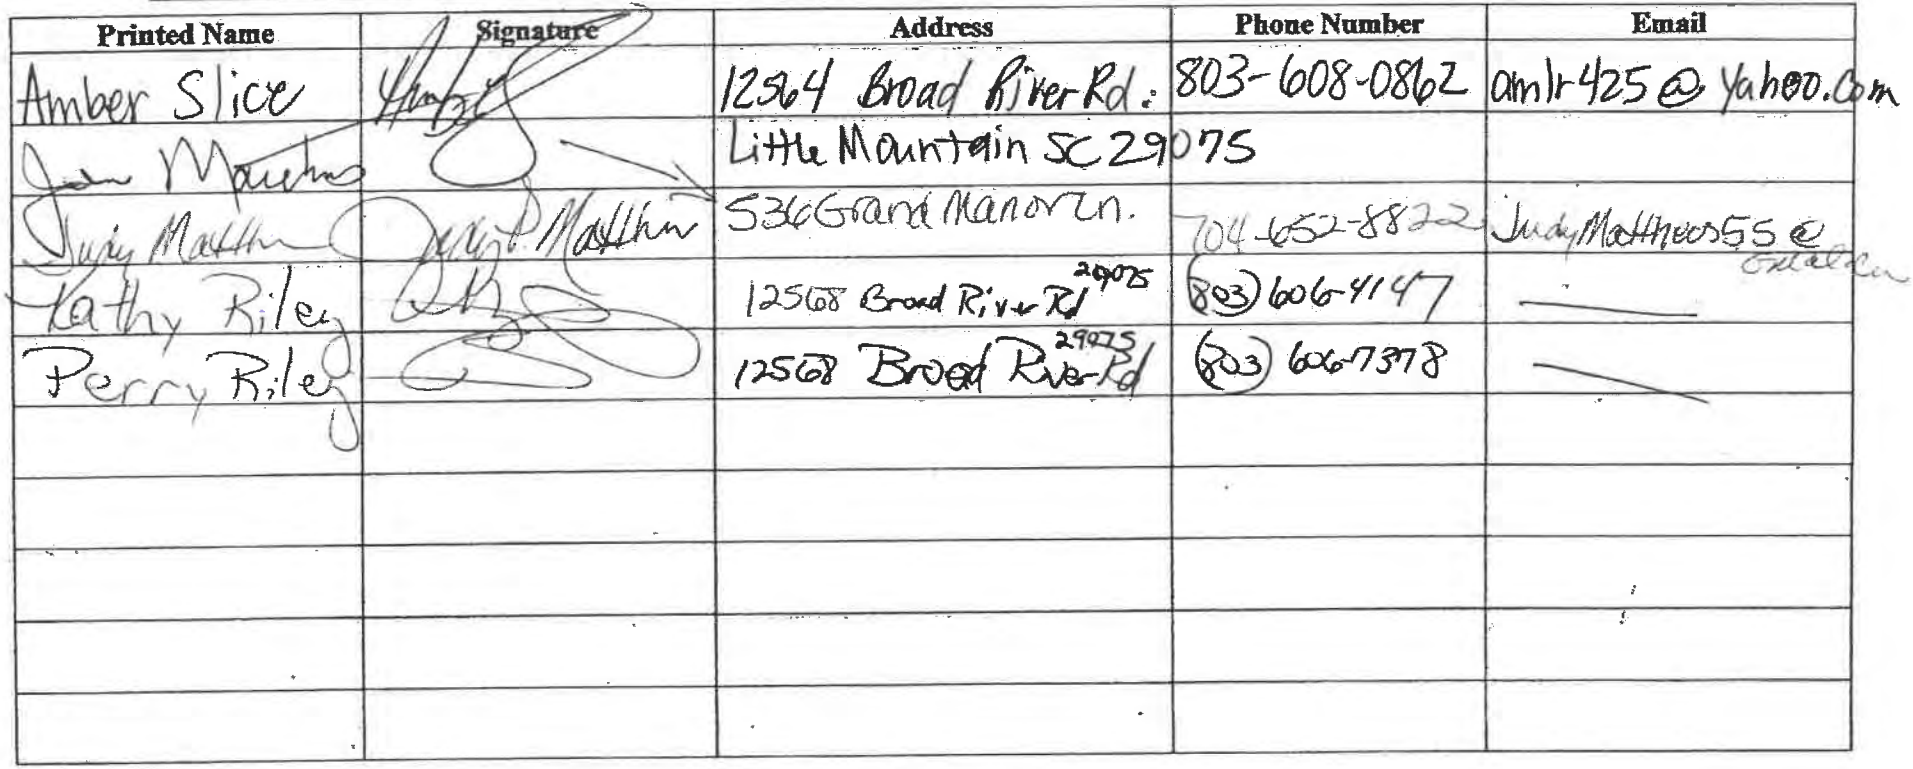 Printed Name Signature Address Phone Number Email
Amber Slice 12564 Broad River Rd. 803-608-0862 amlr425@yahoo.com
Little Mountain SC 29075
Judy P. Matthews 536 Grand Manor Ln. 704-652-8822 JudyMatthews55@
Kathy Riley 12568 Broad River Rd 29075 (803) 606-4147
Perry Riley 12568 Broad River Rd 29075 (803) 606-7378